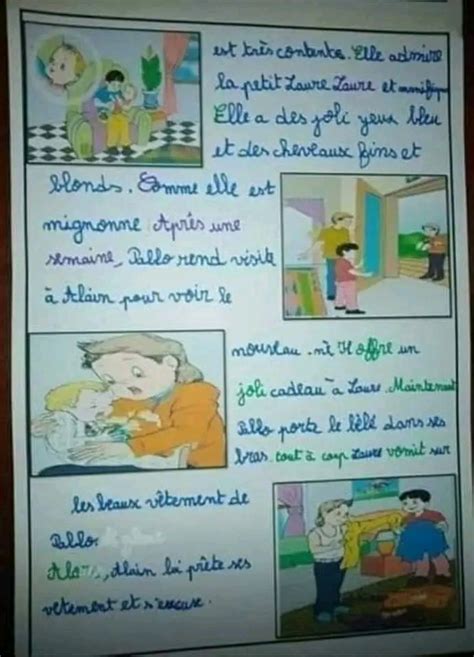 est très contente. Elle admire
la petit Laure Laure et magnifique
Elle a des joli yeux bleu
et des cheveaux fins et
blonds. Comme elle est
mignonne Après une
semaine, Pablo rend visite
à Alain pour voir le
nouveau. né Il offre un
joli cadeau à Laure. Maintenant
Pablo porte le bébé dans ses
bras. tout à coup Laure vomit sur
les beaux vêtement de
Pablo.
Alors, Alain lui prête ses
vetement et s'excuse.